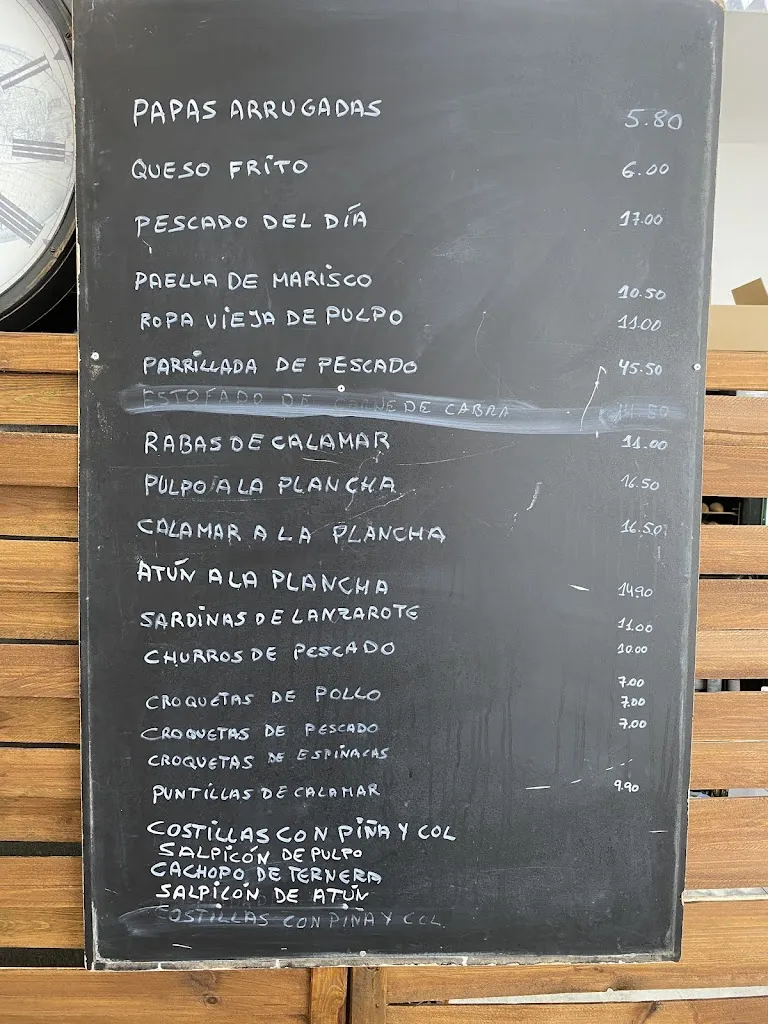 PAPAS ARRUGADAS 5.80
QUESO FRITO 6.00
PESCADO DEL DÍA 17.00
PAELLA DE MARISCO 10.50
ROPA VIEJA DE PULPO 11.00
PARRILLADA DE PESCADO 45.50
ESTOFADO DE CARNE DE CABRA
RABAS DE CALAMAR 11.00
PULPO A LA PLANCHA 16.50
CALAMAR A LA PLANCHA 16.50
ATÚN A LA PLANCHA 14.90
SARDINAS DE LANZAROTE 11.00
CHURROS DE PESCADO 10.00
CROQUETAS DE POLLO 7.00
CROQUETAS DE PESCADO 7.00
CROQUETAS DE ESPINACAS 7.00
PUNTILLAS DE CALAMAR 9.90
COSTILLAS CON PIÑA Y COL
SALPICÓN DE PULPO
CACHOPO DE TERNERA
SALPICÓN DE ATÚN
COSTILLAS CON PIÑA Y COL